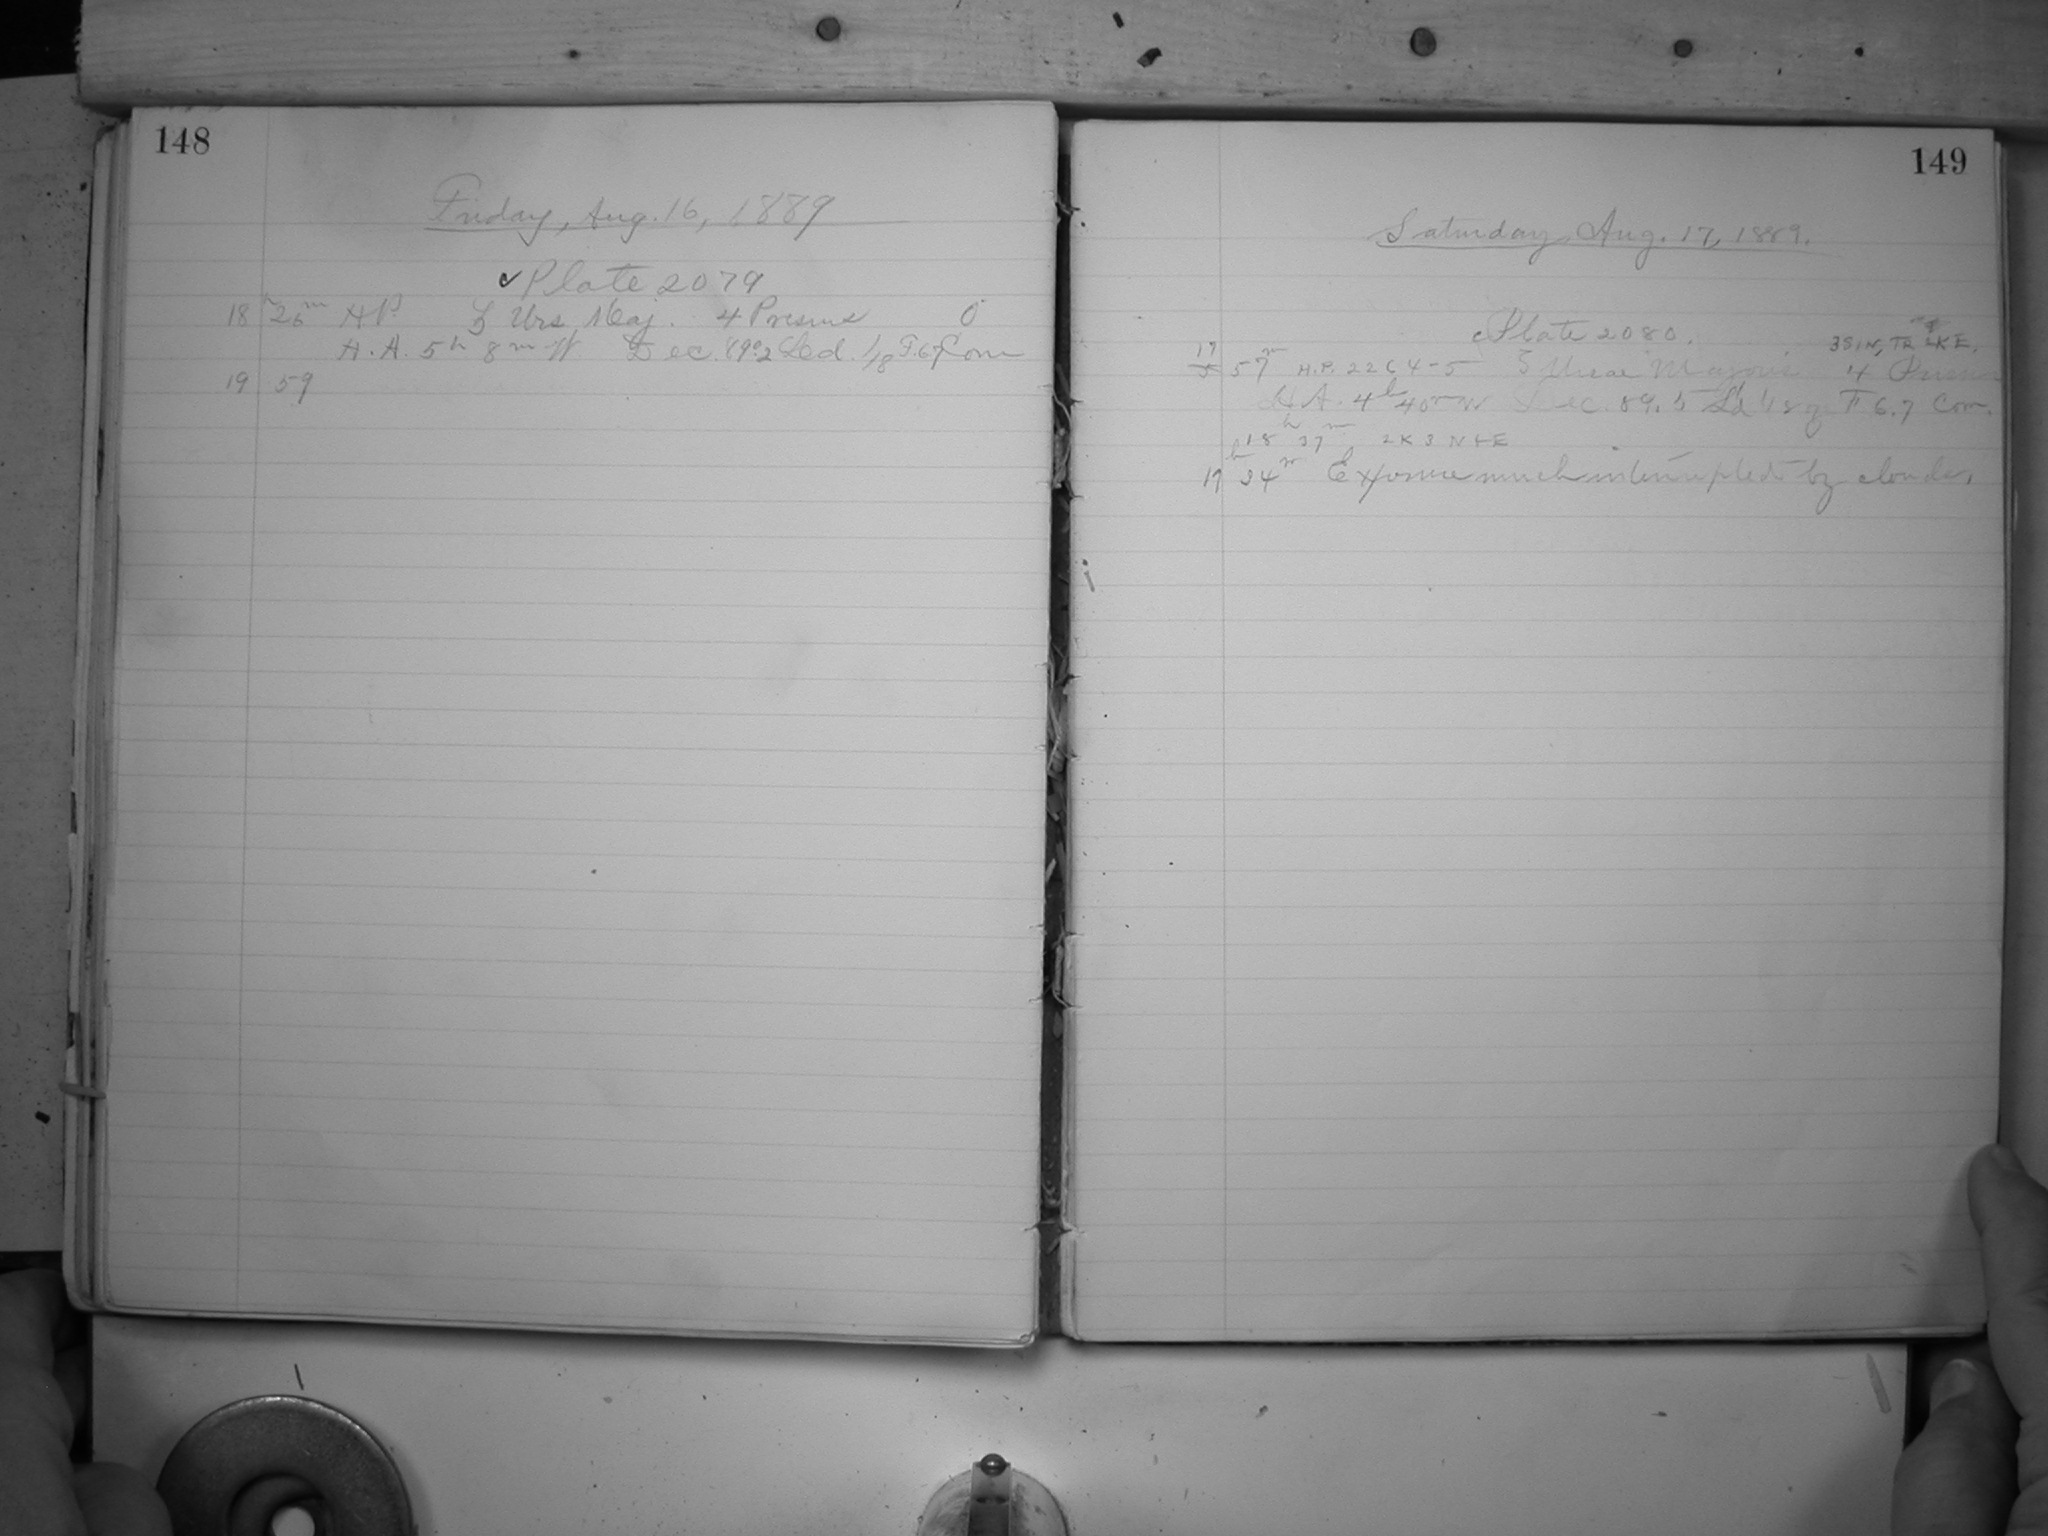 148
Friday, Aug. 16, 1889
✓ Plate 2079
18h 26m HP ζ Urs. Maj. 4 Prisms 0
H.A. 5h 8m W Dec. 89°.2 Led. 1/8 F. 6.7 Com
19 59
149
Saturday, Aug. 17, 1889.
Plate 2080.
17 57m H.P. 2264-5 ζ Ursae Majoris 4 Prisms
H.A. 4h 40m W Dec. 89.5 Ld 48 F 6.7 Com.
18h 37m 2K 3 N & E
19h 34m Exposure much interrupted by clouds.